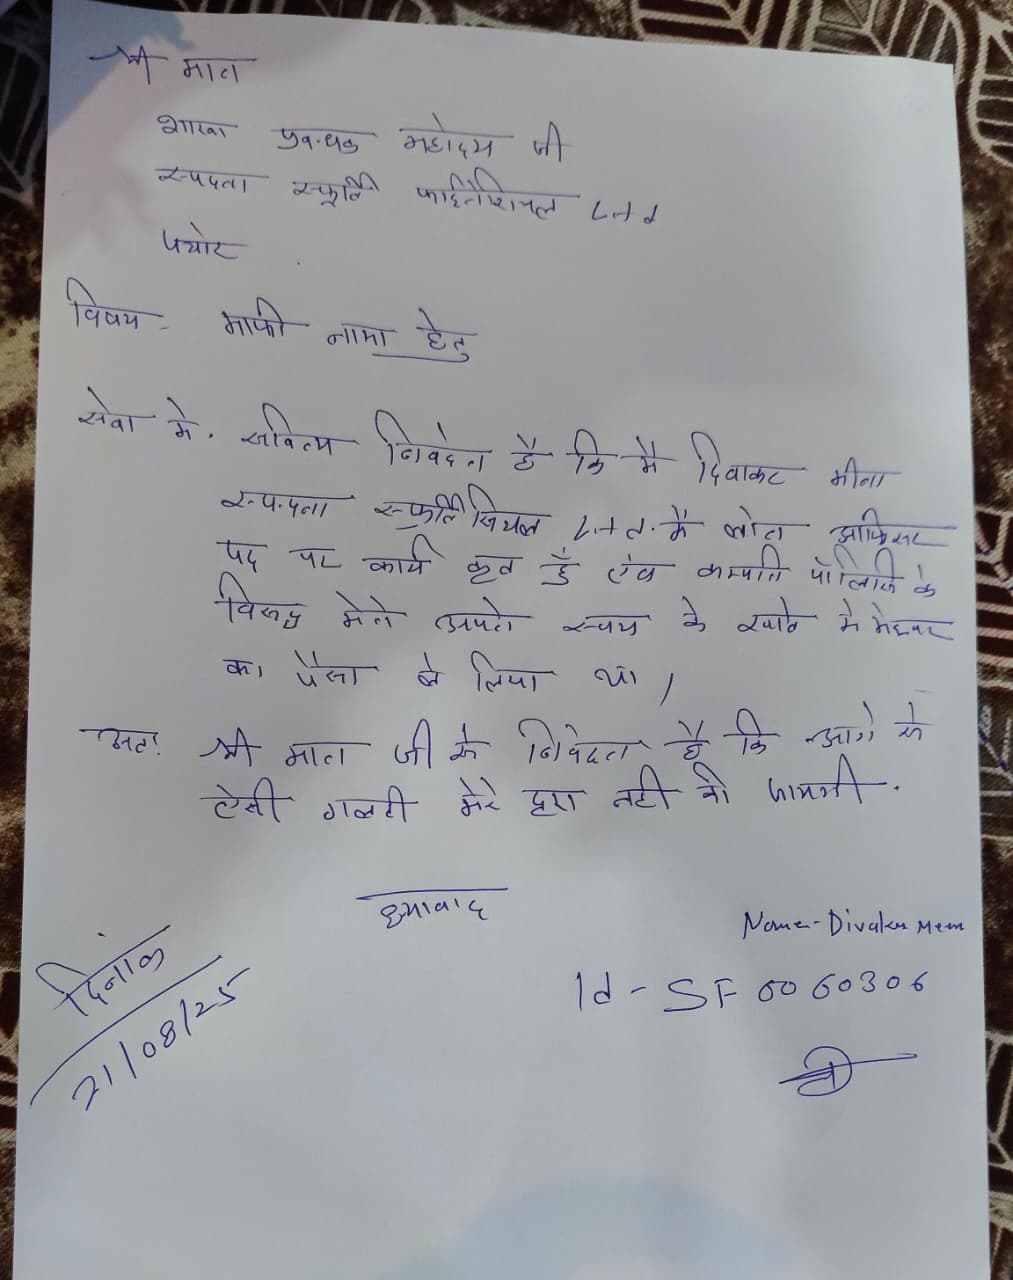 श्री मान
शाखा प्रबन्धक महोदय जी
स्पदना स्फूर्ति फाईनेंशियल Ltd
पचोर
विषय - माफी नामा हेतु
सेवा मे. सविनय निवेदन है कि मै दिवाकर मीना
स्पन्दना स्फूर्ति सियल Ltd. मै लोन आफिसर
पद पर कार्य कृत हूँ एंव कम्पनि पॉलिसि के
विरूद्ध मेने अपने स्वय के खाते मे मेम्बर
का पैसा ले लिया था /
अतः श्री मान जी से निवेदन है कि आगे से
ऐसी गलती मेरे द्वारा नही की जायगी.
धन्यवाद
Name - Divakar Meen
Id - SF0060306
दिनांक
21/08/25